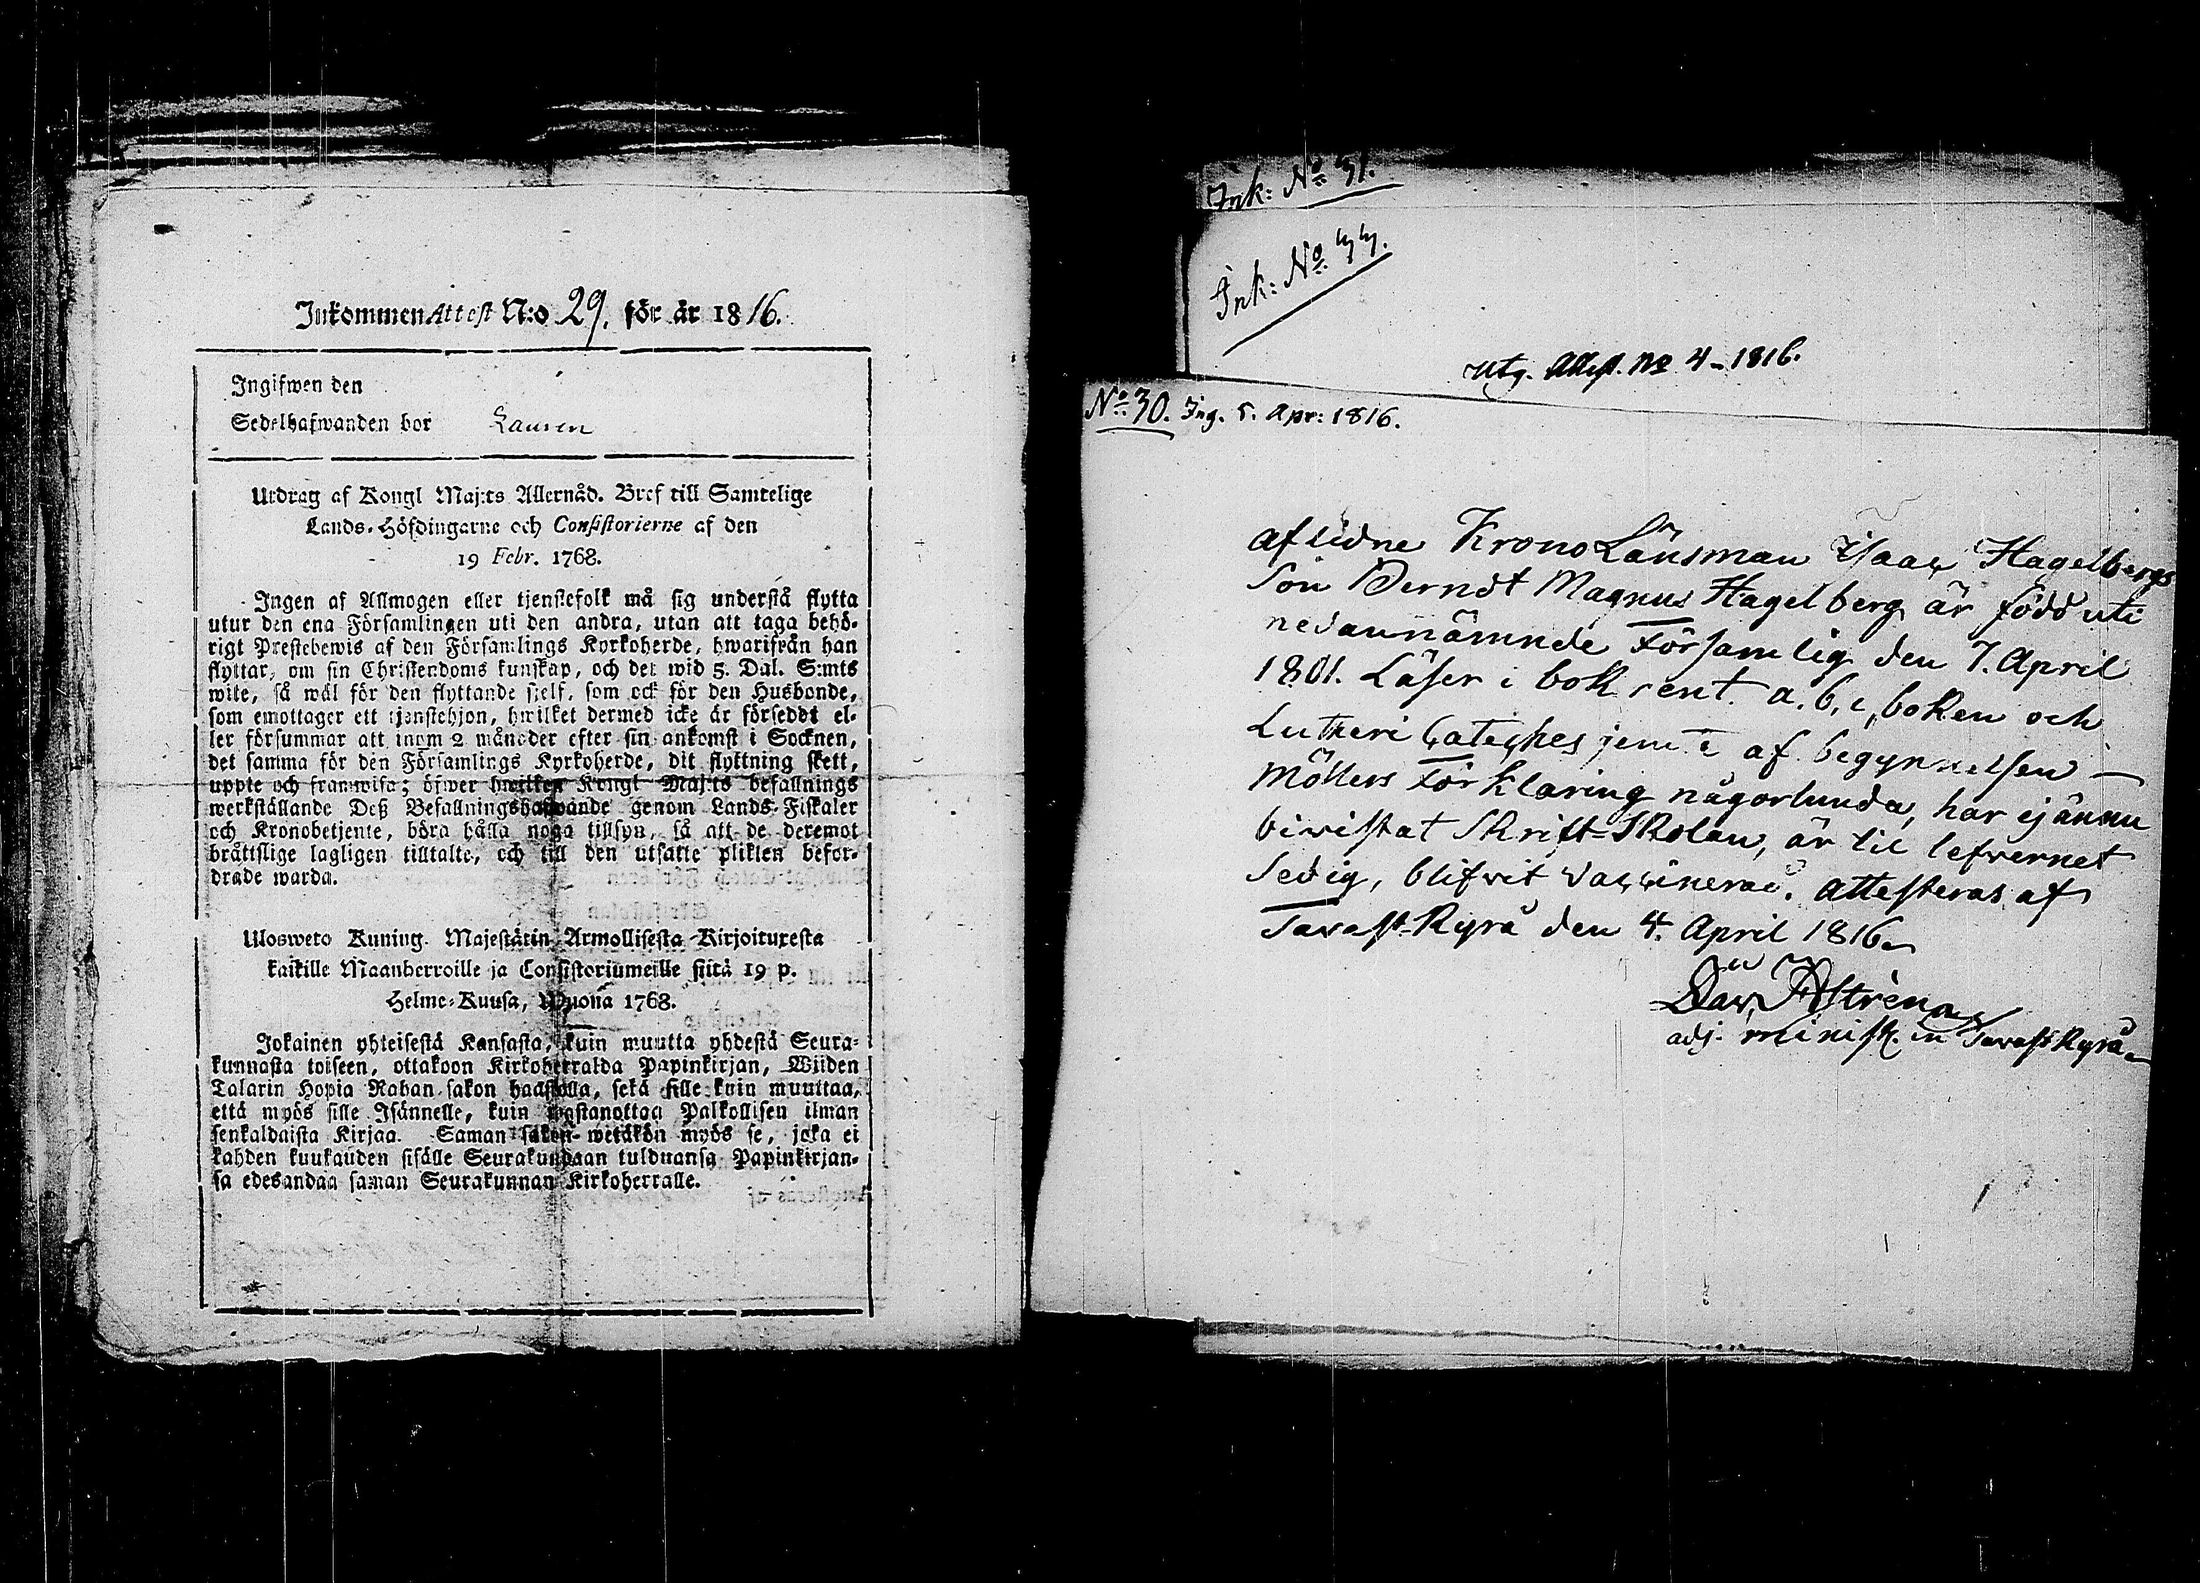 Inkommen Attest N:o 29. för år 1816.
Ingifwen den
Sedelhafwanden bor
Utdrag af Kongl Maj:ts Allernåd. Bref till Samtelige
Lands-Höfdingarne och Consistorierne af den
19 Febr. 1768.
Ingen af Allmogen eller tjenstefolk må sig understå flytta
utur den ena Församlingen uti den andra, utan att taga behö-
rigt Prestebewis af den Församlings Kyrkoherde, hwarifrån han
flyttar, om sin Christendoms kunskap, och det wid 5. Dal. S:mts
wite, så wäl för den flyttande sjelf, som ock för den Husbonde,
som emottager ett tjenstehjon, hwilket dermed icke är försedt el-
ler försummar att inom 2 månader efter sin ankomst i Socknen,
det samma för den Församlings Kyrkoherde, dit flyttning skett,
uppte och framwisa; öfwer hwilken Kongl Maj:ts befallnings
werkställande Deß Befallningshafwande genom Lands-Fiskaler
och Kronobetjente, böra hålla noga tillsyn, så att de deremot
bråttslige lagligen tilltalte, och till den utsatte plikten befor-
drade warda.
Ulosweto Kuning. Majestätin Armollisesta Kirjoituxesta
kaikille Maanherroille ja Consistoriumeille siitä 19 p.
Helme-Kuusa, Wuona 1768.
Jokainen yhteisestä Kansasta, kuin muutta yhdestä Seura-
kunnasta toiseen, ottakoon Kirkoherralda Papinkirjan, Wiiden
Talarin Hopia Rahan sakon haastolla, sekä sille kuin muuttaa,
että myös sille Isännelle, kuin wastanottaa Palkollisen ilman
senkaldaista Kirjaa. Saman sakon wetäkön myös se, joka ei
kahden kuukauden sisälle Seurakundaan tulduansa Papinkirjan-
sa edesandaa saman Seurakunnan Kirkoherralle.
Ink: No 31.
Ink: No 44.
Utg. Attest. No 4 - 1816.
No 30. Ing. 5. Apr: 1816.
aflidne Krono Länsman Isaac Hagelbergs
Son Berndt Magnus Hagelberg är född uti
nedannämnde Församlig den 7. April
1801. Läser i bok rent. a. b. c, boken och
Lutheri Catechés jemte af begynnelsen
Möllers Förklaring någorlunda, har ej ännu
biwistat Skrift-Skolan, är til lefwernet
Sedig, blifwit Vaccinerad. Attesteras af
Tavast-Kyrå den 4. April 1816
adj. minist. in Tavast Kyrå